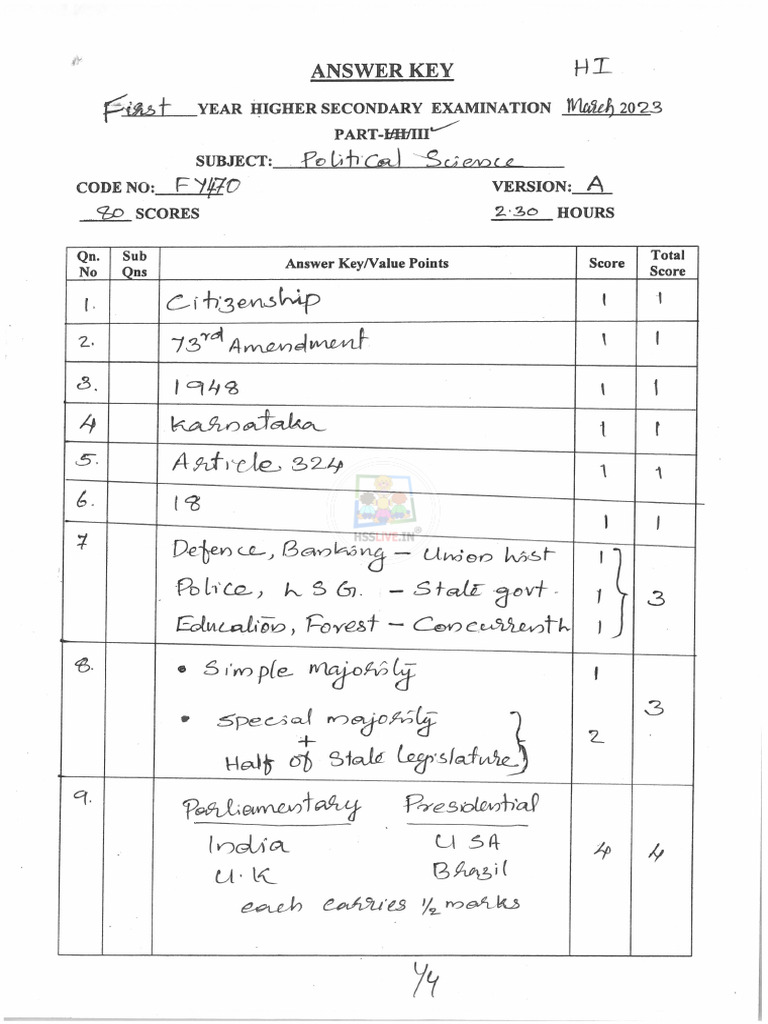 ANSWER KEY HI
First YEAR HIGHER SECONDARY EXAMINATION March 2023
PART-I/II/III
SUBJECT: Political Science
CODE NO: FY470 VERSION: A
80 SCORES 2.30 HOURS
Qn. No Sub Qns Answer Key/Value Points Score Total Score
1. Citizenship 1 1
2. 73rd Amendment 1 1
3. 1948 1 1
4 Karnataka 1 1
5. Article 324 1 1
6. 18 1 1
HSSLIVE.IN®
7 Defence, Banking – Union list 1
Police, L S G. – State govt. 1 3
Education, Forest – Concurrent L 1
8. • Simple majority 1
• Special majority 3
+ 2
Half of State legislature
9. Parliamentary Presidential
India U SA 4 4
U.K Brazil
each carries 1/2 marks
1/4